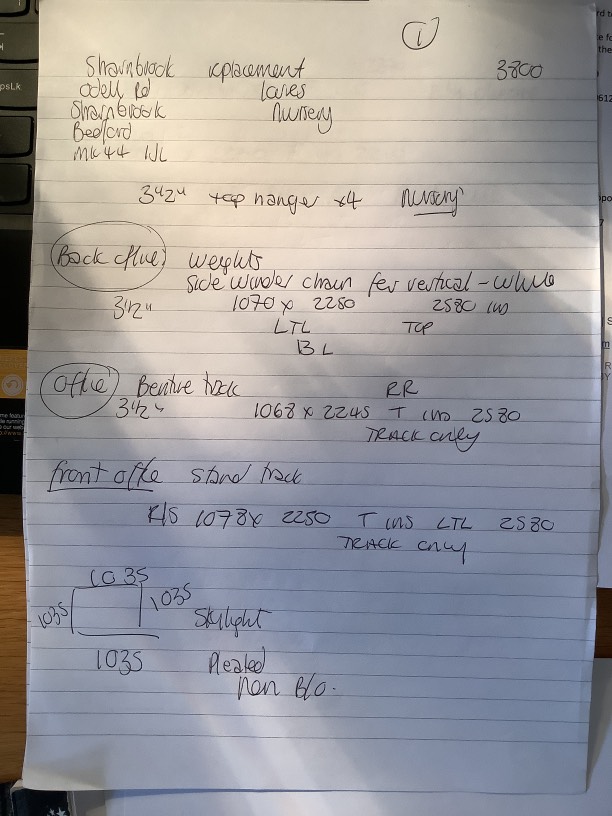 1
Sharnbrook replacement 3800
Odell Rd Louvres
Sharnbrook Nursery
Bedford
MK44 1JL
3 1/2" top hanger x4 Nursery
Back office weights
side winder chain for vertical - white
3 1/2" 1070 x 2250 2580 ins
LTL TOP
BL
Office track RR
3 1/2" 1068 x 2245 T ins 2580
TRACK only
front office stand track
R/S 1078 x 2250 T ins LTL 2580
TRACK only
1035
1035 1035
Skylight
1035 Pleated
Non B/O.